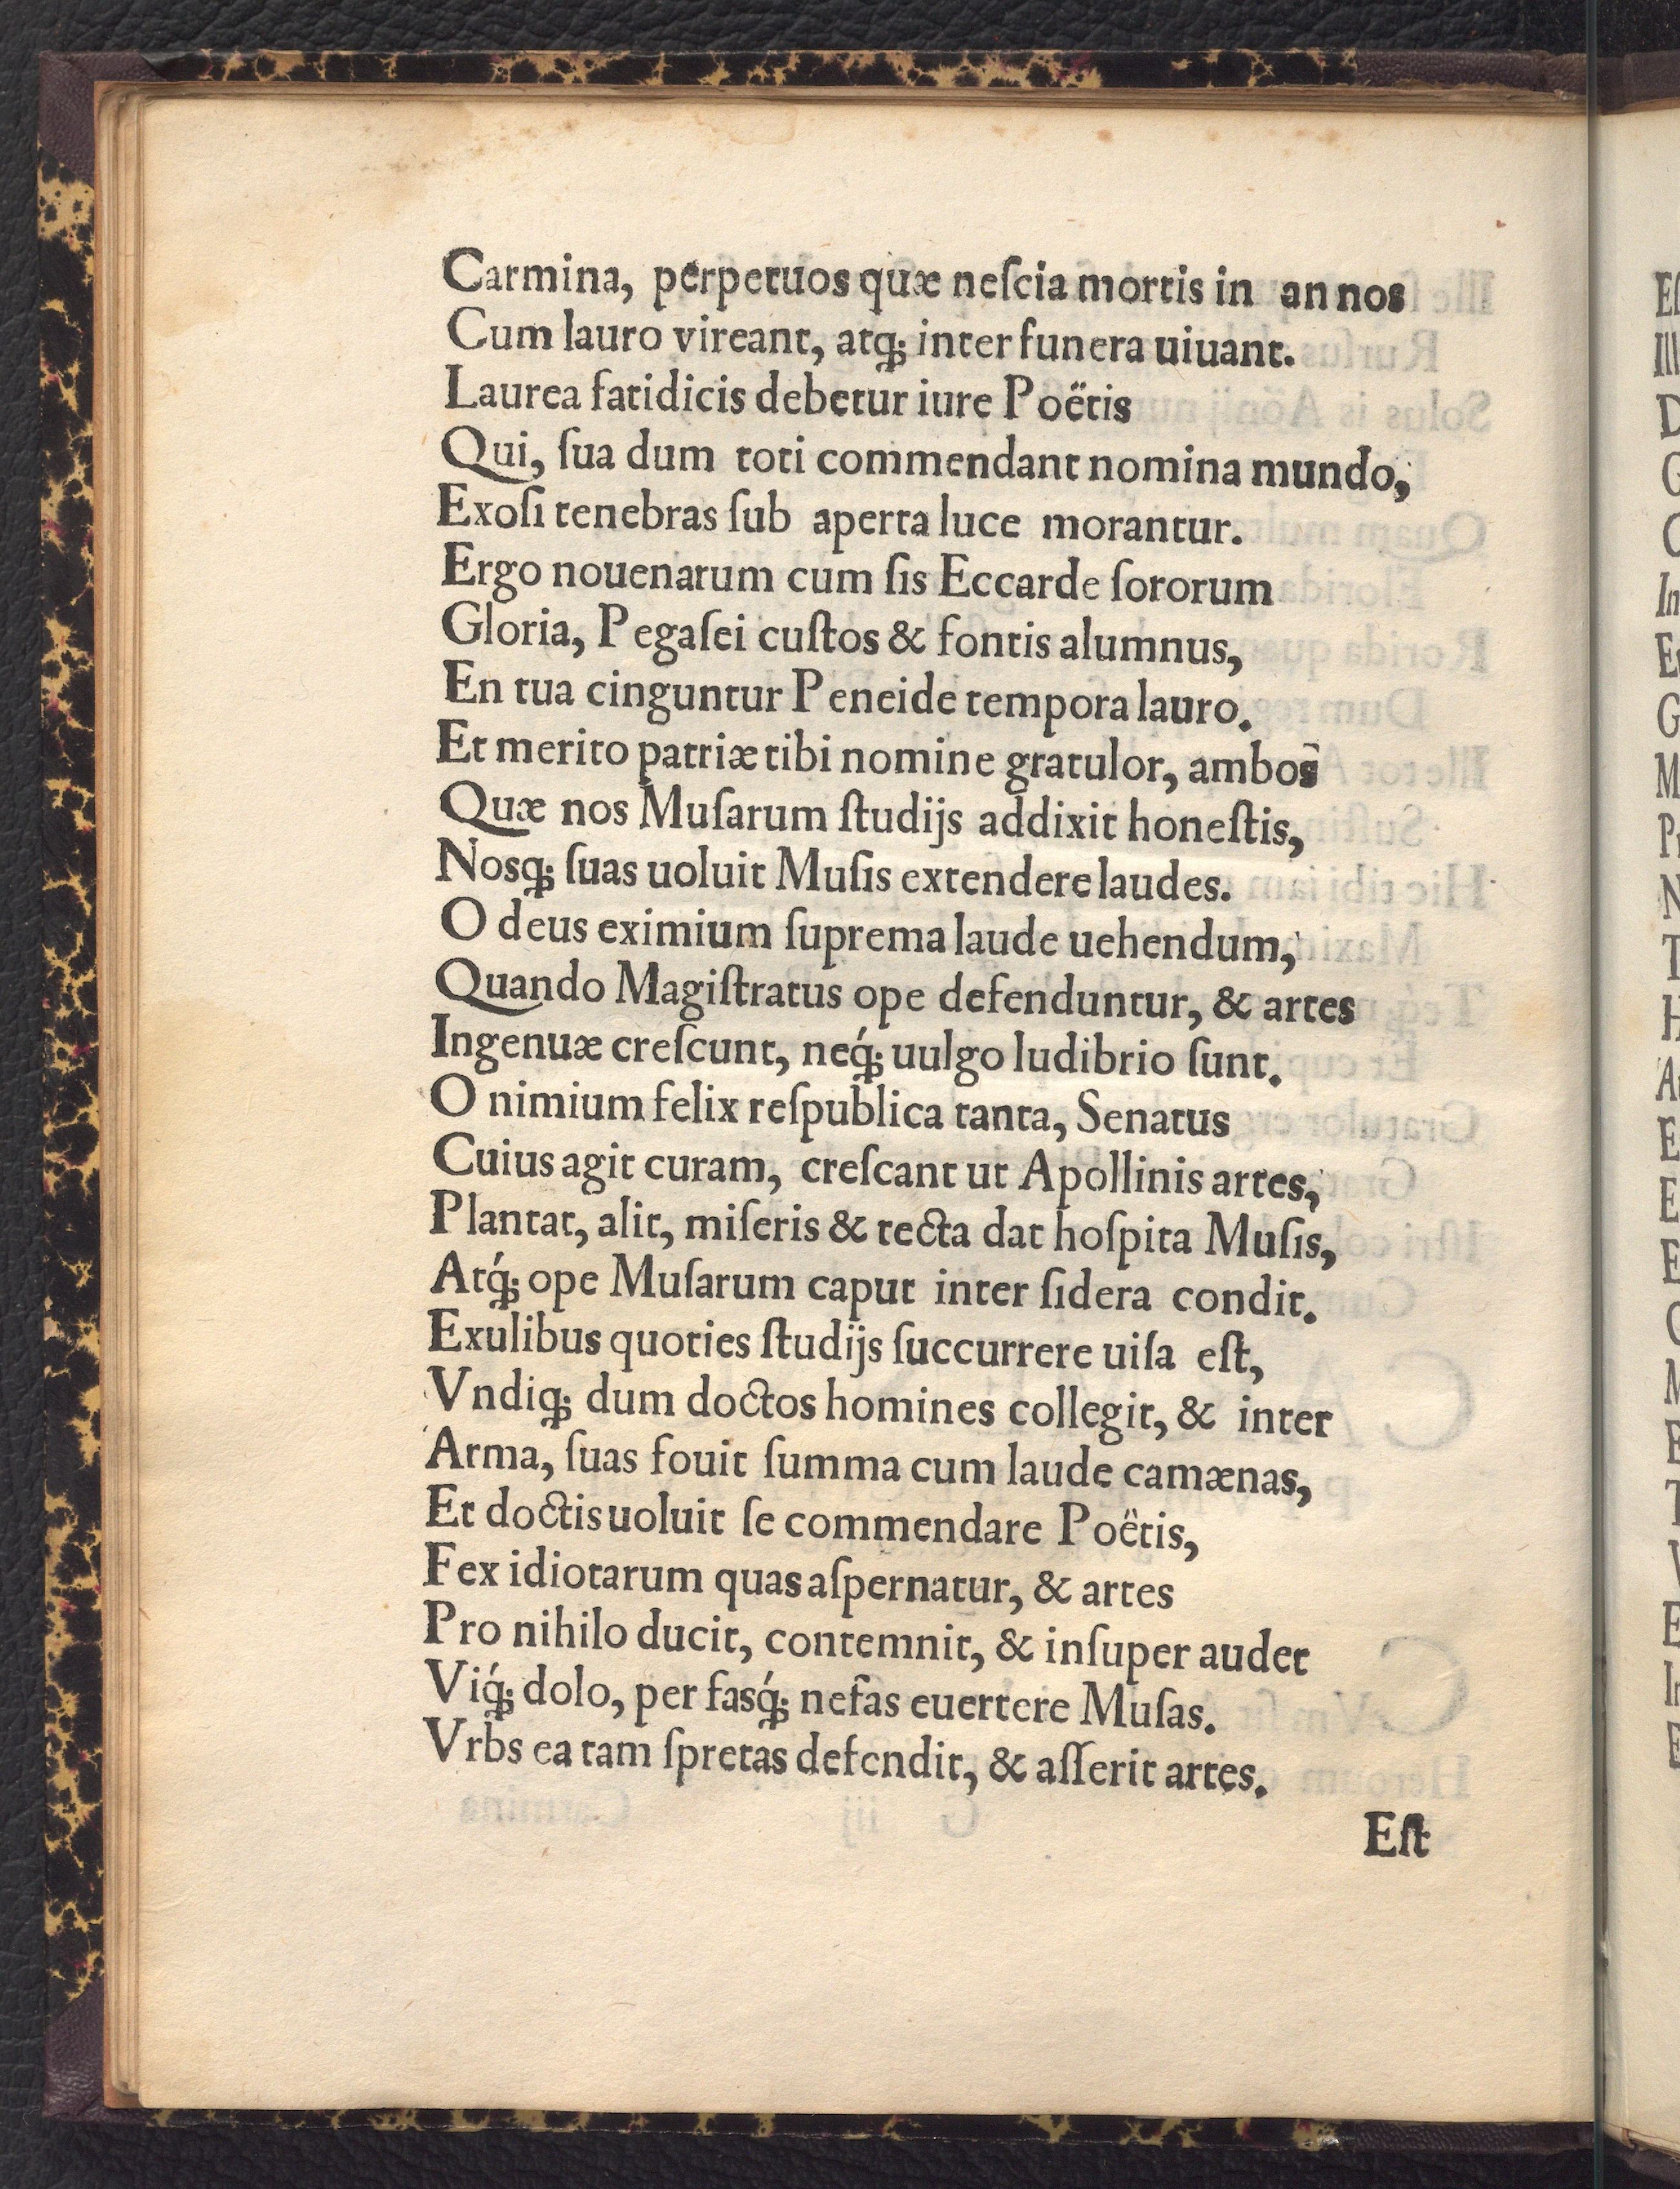 Carmina, perpetuos quæ neſcia mortis in annos
Cum lauro vireant, atq́; inter funera uiuant.
Laurea fatidicis debetur iure Poëtis
Qui, ſua dum toti commendant nomina mundo,
Exoſi tenebras ſub aperta luce morantur.
Ergo nouenarum cum ſis Eccarde ſororum
Gloria, Pegaſei cuſtos & fontis alumnus,
En tua cinguntur Peneide tempora lauro.
Et merito patriæ tibi nomine gratulor, ambos
Quæ nos Muſarum ſtudijs addixit honeſtis,
Nosq; ſuas uoluit Muſis extendere laudes.
O deus eximium ſuprema laude uehendum,
Quando Magiſtratus ope defenduntur, & artes
Ingenuæ creſcunt, neq́; uulgo ludibrio ſunt.
O nimium felix reſpublica tanta, Senatus
Cuius agit curam, creſcant ut Apollinis artes,
Plantat, alit, miſeris & tecta dat hoſpita Muſis,
Atq́; ope Muſarum caput inter ſidera condit.
Exulibus quoties ſtudijs ſuccurrere uiſa eſt,
Vndiq; dum doctos homines collegit, & inter
Arma, ſuas fouit ſumma cum laude camænas,
Et doctis uoluit ſe commendare Poëtis,
Fex idiotarum quas aſpernatur, & artes
Pro nihilo ducit, contemnit, & inſuper audet
Viq́; dolo, per fasq́; nefas euertere Muſas.
Vrbs ea tam ſpretas defendit, & aſſerit artes.
Eſt